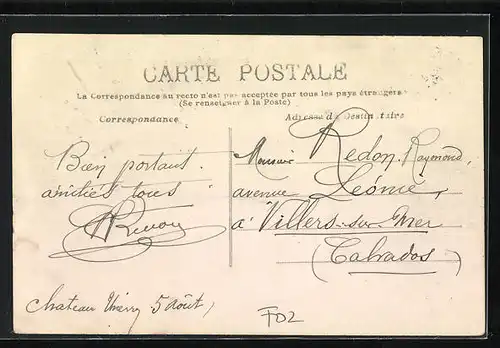 CARTE POSTALE
La Correspondance au recto n'est pas acceptée par tous les pays étrangers
(Se renseigner à la Poste)
Correspondance
Adresse du Destinataire
Bien portant.
amitiés tous
Monsieur Redon Raymond,
avenue Léonie,
à Villers-sur-Mer
(Calvados)
Chateau Thierry 5 Août
FD2